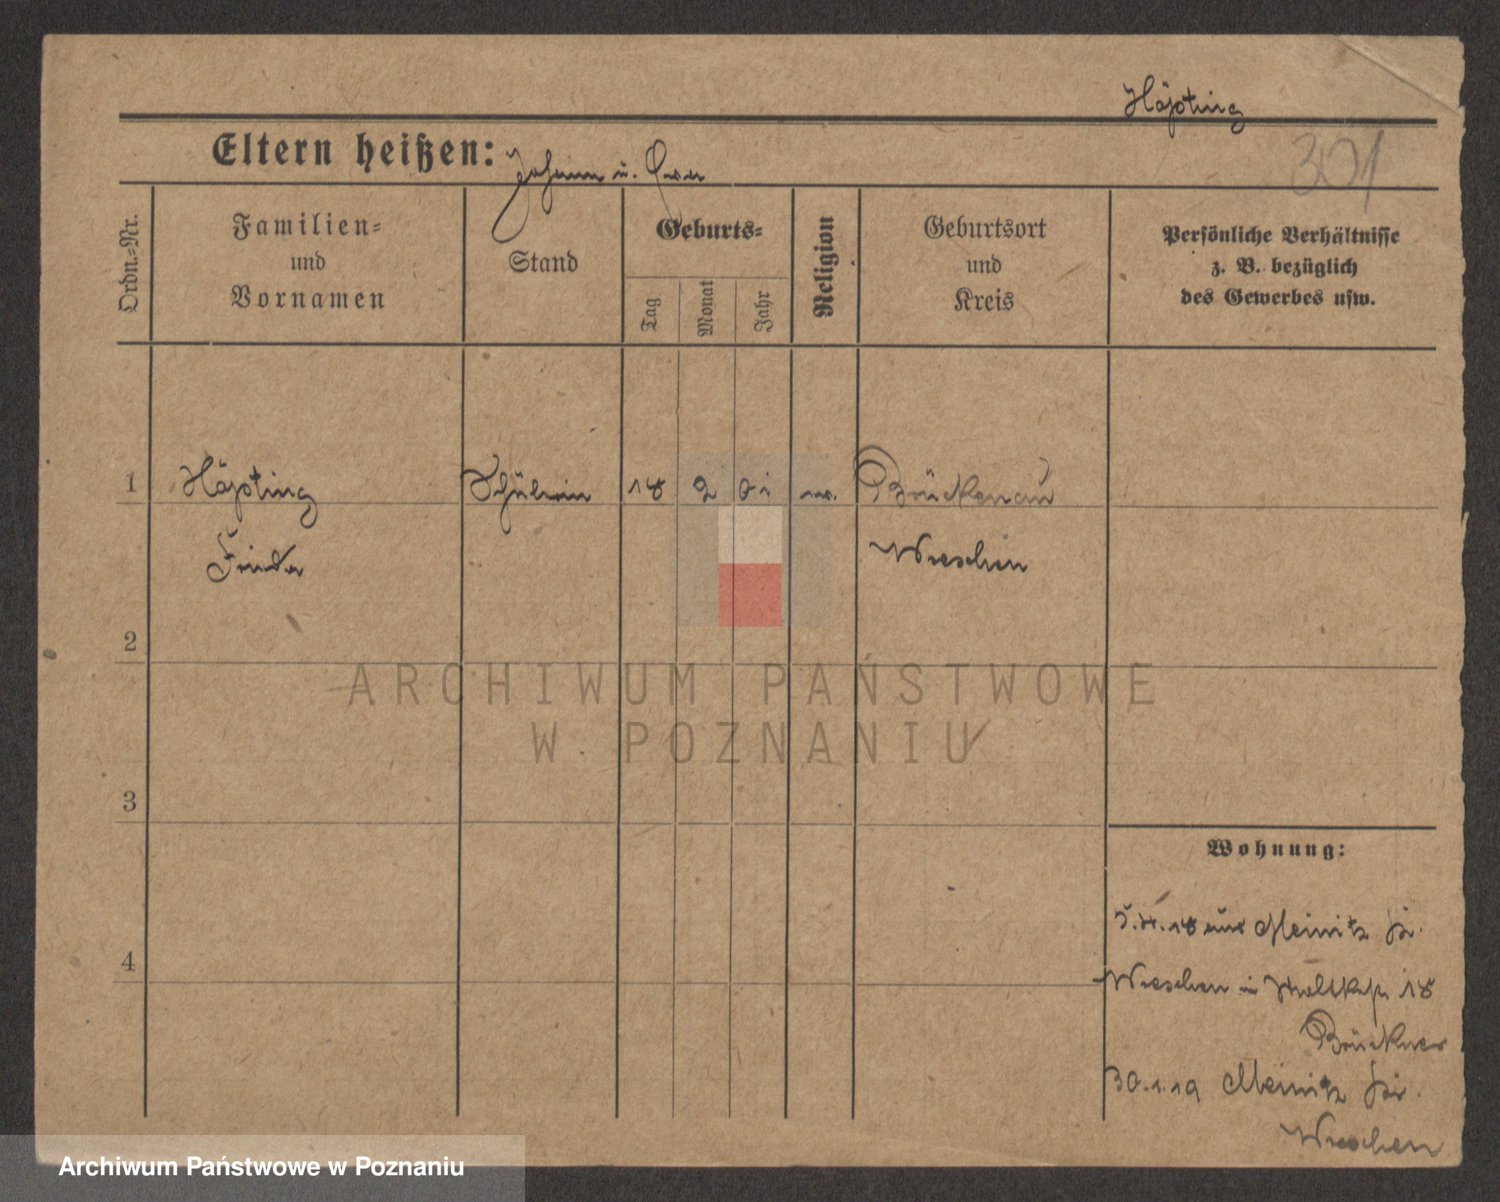 Häfting
301
Eltern heißen: Johann u.
Ordn.-Nr.
Familien-
und
Vornamen
Stand
Geburts-
Tag
Monat
Jahr
Religion
Geburtsort
und
Kreis
Persönliche Verhältnisse
z. B. bezüglich
des Gewerbes usw.
1
Schülerin
18
2
Brückenau
Frieda
Wreschen
2
ARCHIWUM PAŃSTWOWE
W POZNANIU
3
Wohnung:
5.4.18 aus
4
Wreschen in 18
Brückner
30.1.19
Wreschen
Archiwum Państwowe w Poznaniu